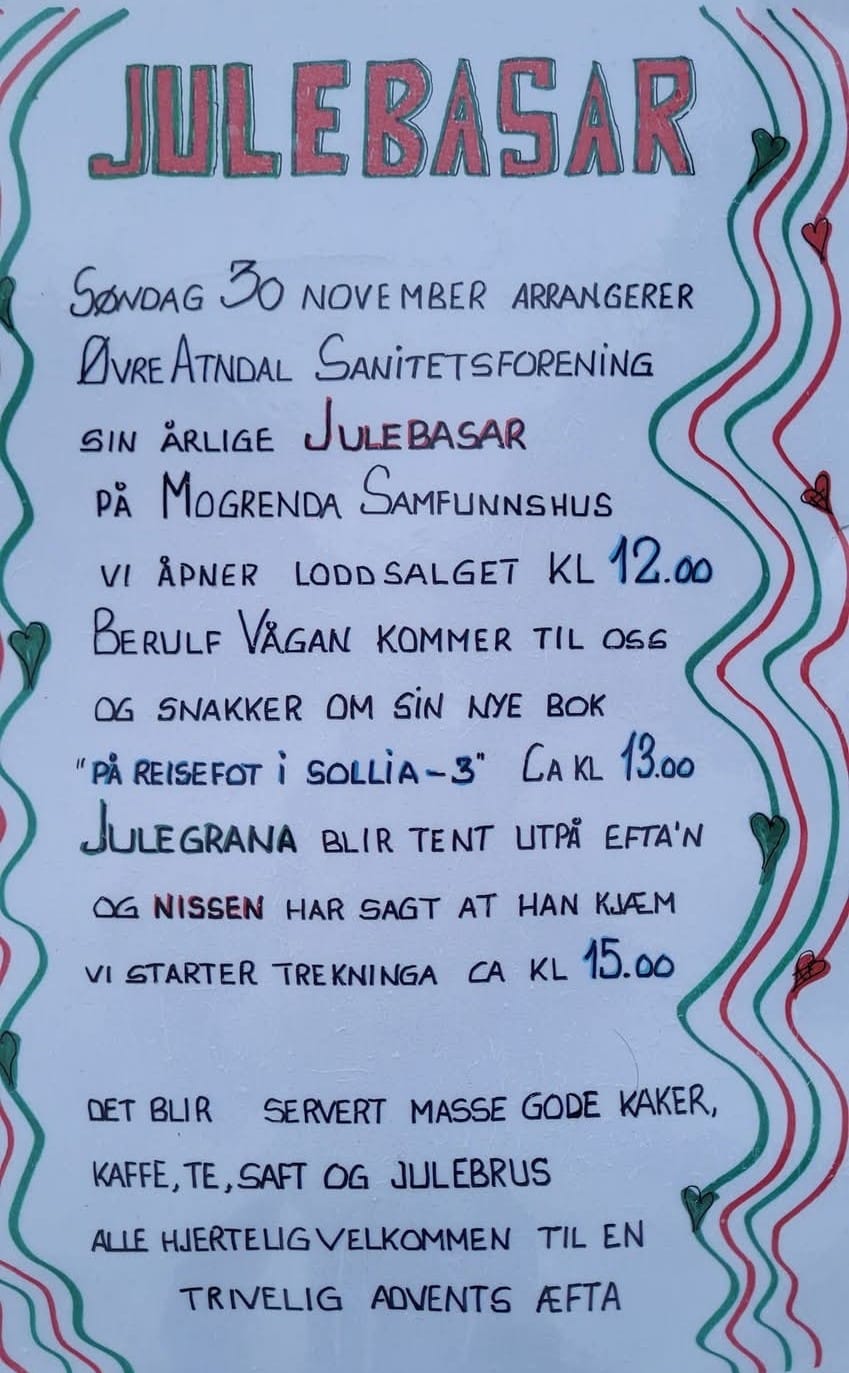 JULEBASAR
SØNDAG 30 NOVEMBER ARRANGERER
ØVRE ATNDAL SANITETSFORENING
SIN ÅRLIGE JULEBASAR
PÅ MOGRENDA SAMFUNNSHUS
VI ÅPNER LODDSALGET KL 12.00
BERULF VÅGAN KOMMER TIL OSS
OG SNAKKER OM SIN NYE BOK
"PÅ REISEFOT I SOLLIA-3" CA KL 13.00
JULEGRANA BLIR TENT UTPÅ EFTA'N
OG NISSEN HAR SAGT AT HAN KJÆM
VI STARTER TREKNINGA CA KL 15.00
DET BLIR SERVERT MASSE GODE KAKER,
KAFFE, TE, SAFT OG JULEBRUS
ALLE HJERTELIG VELKOMMEN TIL EN
TRIVELIG ADVENTS ÆFTA